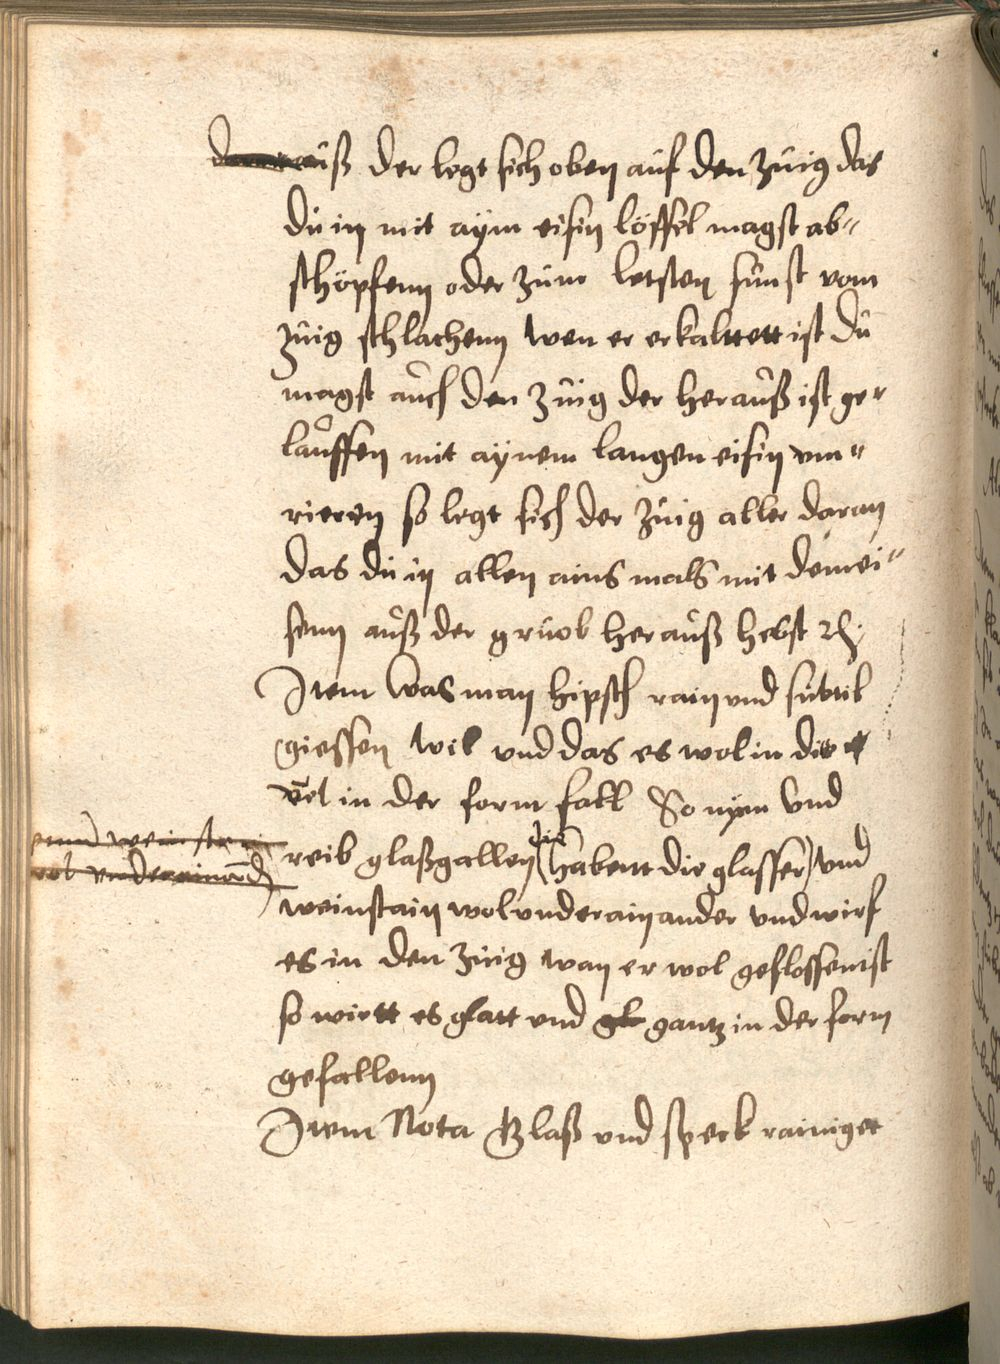 auß der legt sich oben auf den zuig das
du in mit aÿm eisin löffel magst ab-
schöpfenn oder zum letsten sunst vom
zuig schlachenn wen er erkalttett ist du
magst auch den zuig der herauß ist ge-
lauffen mit aÿnem langen eisin um-
rieren so legt sich der zuig aller daran
das du in allen ains mals mit dem ei-
senn auß der gruob herauß hebst
Item was man hipsch rain und subtil
giessen wil und das es wol in die
in der form fall So nÿm und
reib glaßgallen (die habent die glasser) und
wein stain
wol underainand
weinstain wol underainander und wirf
es in den zuig wan er wol geflossen ist
so wirtt es glatt und gl gantz in der form
gefallenn
Item Nota Glaß und speck rainiget